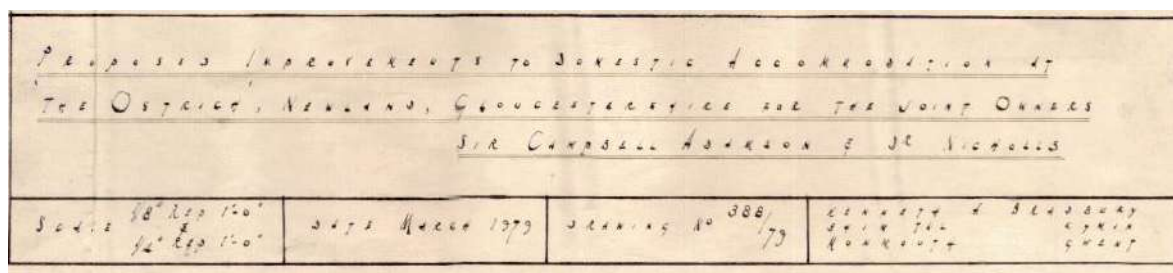 Proposed Improvements to Domestic Accommodation at
'The Ostrich', Newland, Gloucestershire for the Joint Owners
Sir Campbell Adamson & Dr Nicholls
Scale 1/8" Rep 1'-0" & 1/4" Rep 1'-0"
Date March 1979
Drawing No 388/79
Kenneth A Bradbury
Kymin
Monmouth Gwent